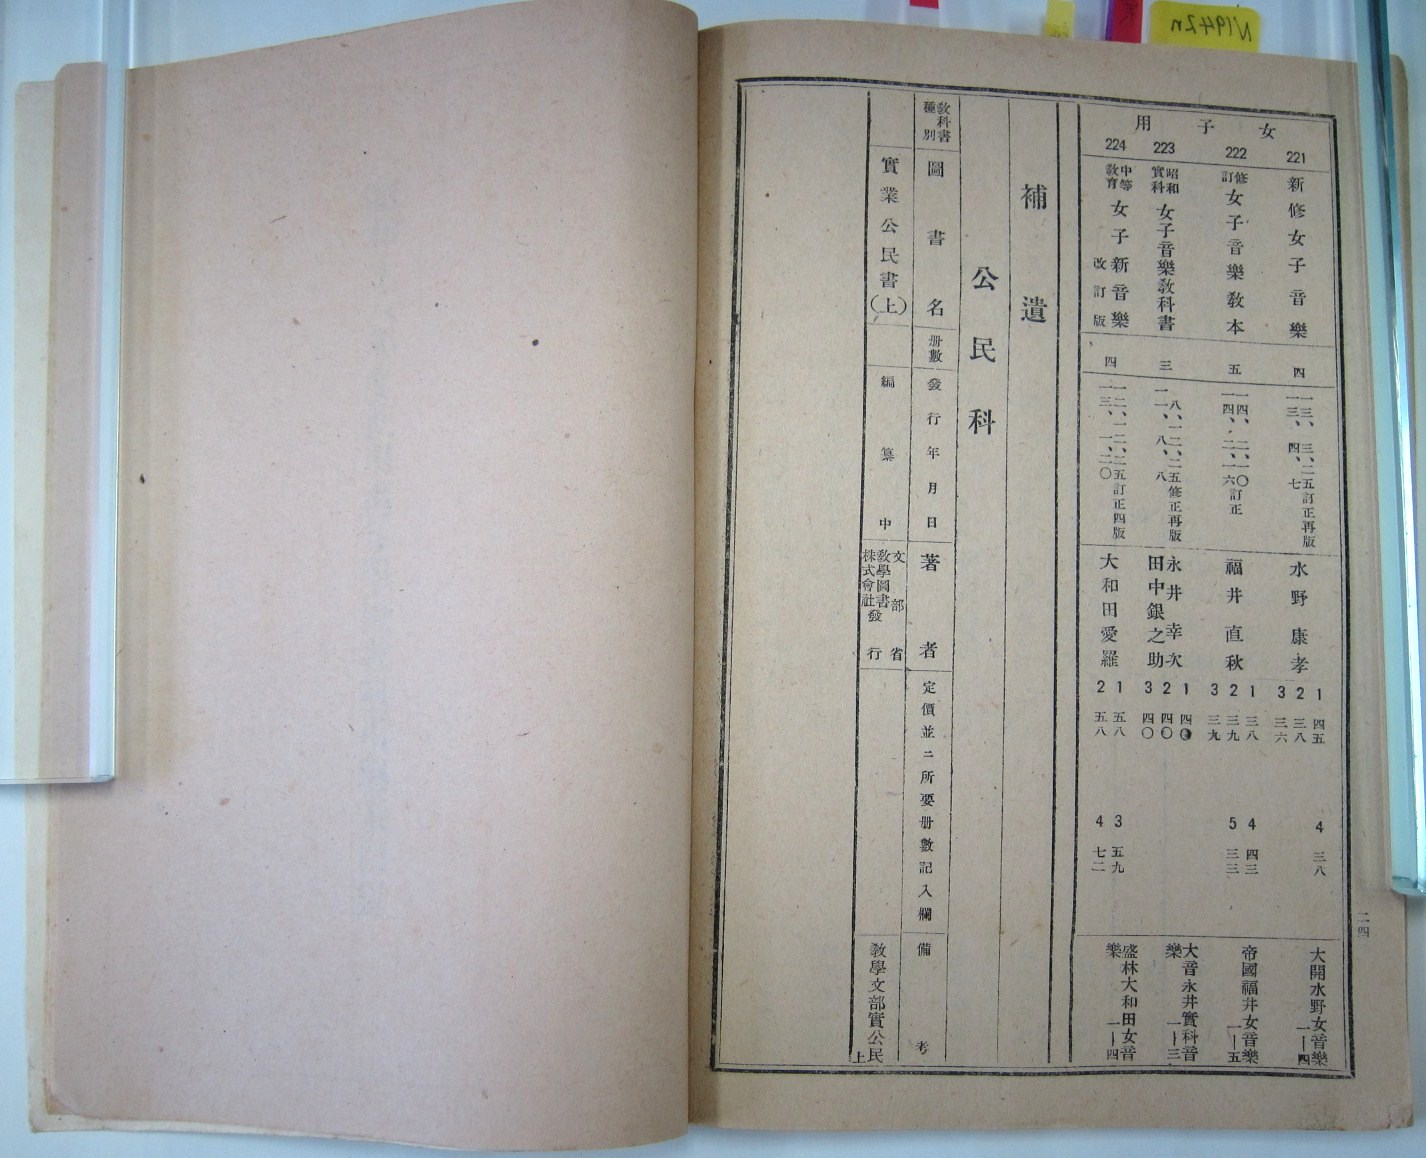 女子用
221
新修女子音樂
四
一三、三、二五訂正再版
一三、四、七
水野康孝
1 四五
2 三八
3 三六
4 三八
大開水野女音樂
一—四
222
修訂 女子音樂敎本
五
一四、二、一〇訂正
一四、二、一六
福井直秋
1 三八
2 三九
3 三九
4 四三
5 三三
帝國福井女音樂
一—五
223
昭和實科 女子音樂敎科書
三
八、一二、二五修正再版
一一、八、八
永井幸次
田中銀之助
1 四〇
2 四〇
3 四〇
大音永井實科音樂
一—三
224
中等敎育 女子新音樂 改訂版
四
一二、一二、二五訂正四版
一三、一、二〇
大和田愛羅
1 五八
2 五八
3 五九
4 七二
盛林大和田女音樂
一—四
補遺
公民科
敎科書種別
圖書名
册數
發行年月日
著者
定價並ニ所要册數記入欄
備考
實業公民書(上)
編纂中
文部省
敎學圖書株式會社發行
敎學文部實公民
上
二四
N1942n